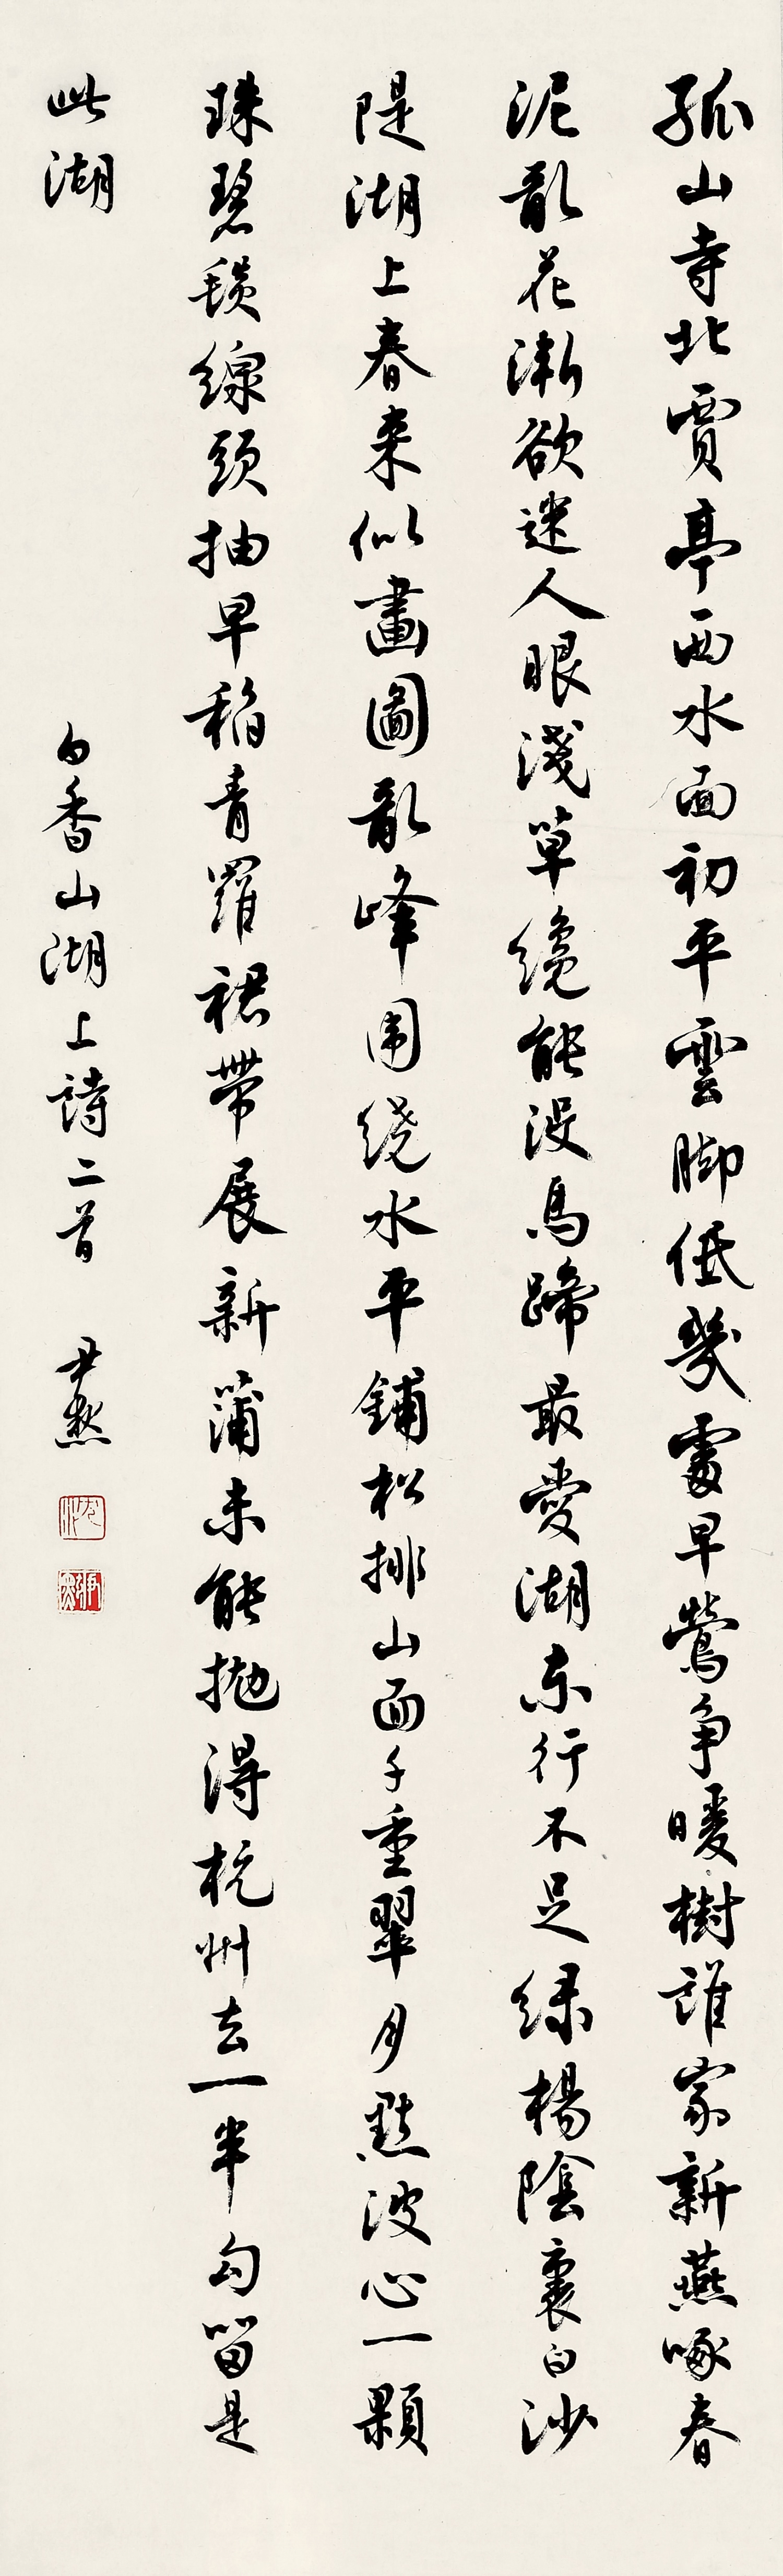 孤山寺北賈亭西水面初平雲脚低幾處早鶯争暖樹誰家新燕啄春
泥亂花漸欲迷人眼淺草纔能没馬蹄最愛湖東行不足緑楊陰裏白沙
隄湖上春来似畫圖亂峰圍繞水平鋪松排山面千重翠月點波心一顆
珠碧毯線頭抽早稻青羅裙帶展新蒲未能抛得杭州去一半勾留是
此湖
白香山湖上詩二首 尹默
沈尹